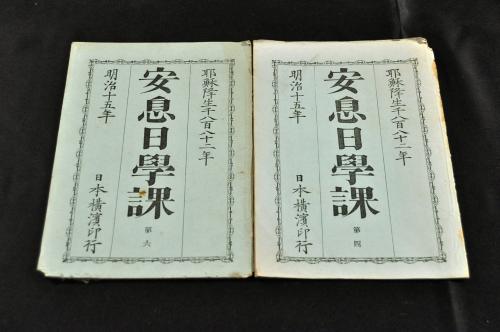 耶穌降生千八百八十二年
安息日學課
第四
明治十五年
日本橫濱印行
耶穌降生千八百八十二年
安息日學課
第六
明治十五年
日本橫濱印行